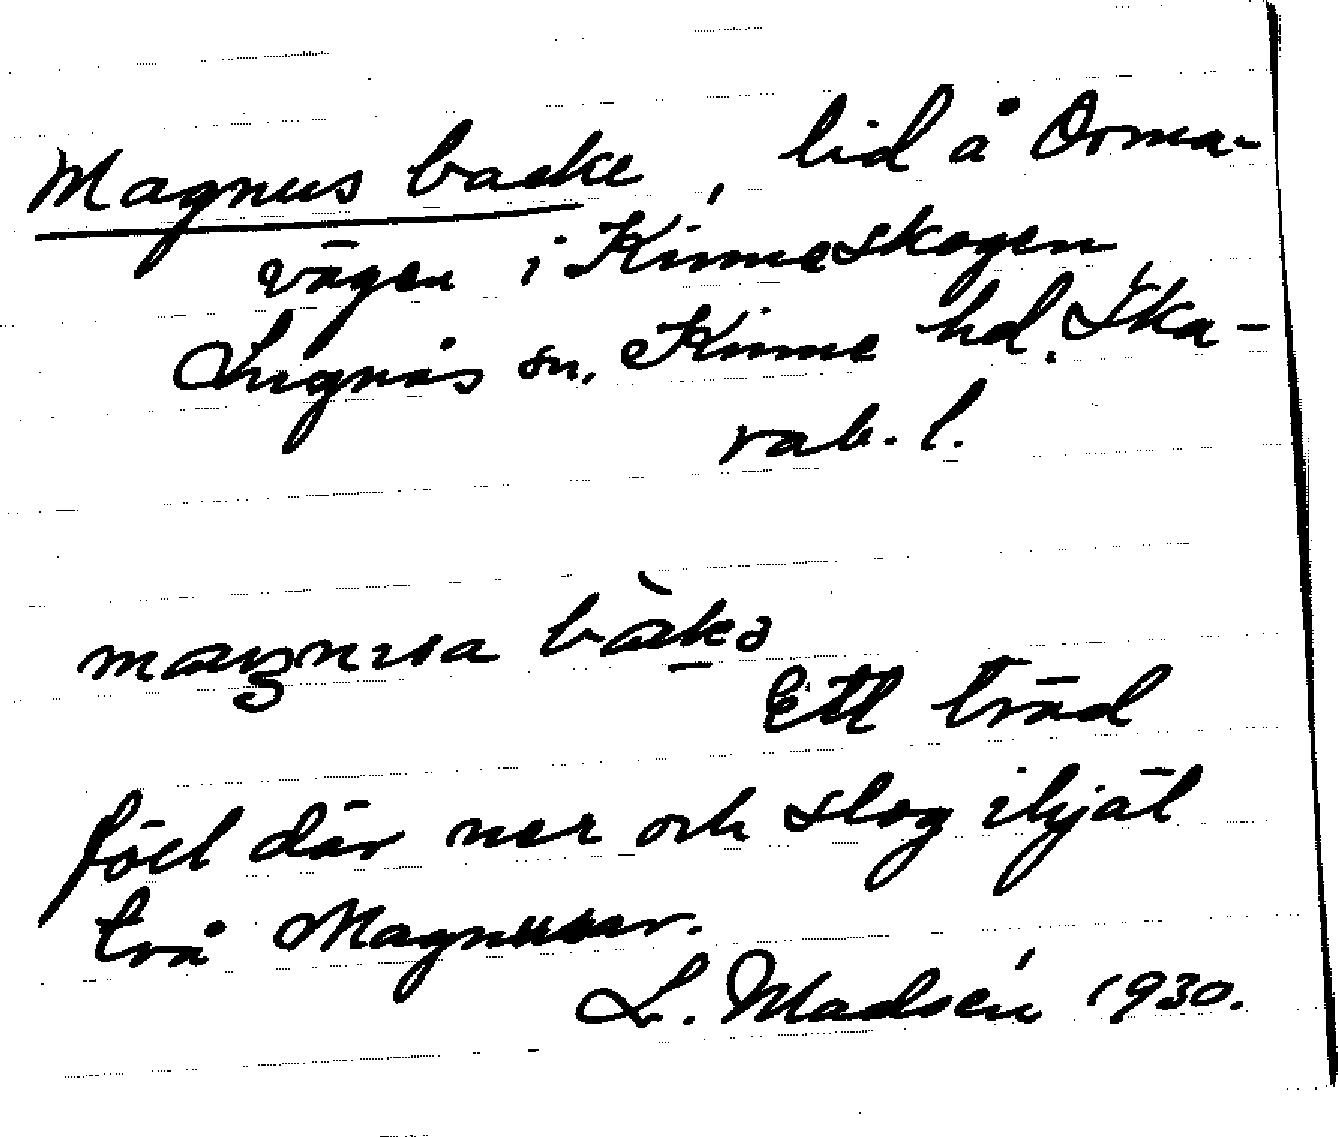 Magnus backe, lid å Orma-
vägen i Kinneskogen
Lugnås sn, Kinne hd. Ska-
rab. l.
Ett träd
föll där ner och slog ihjäl
två Magnusar.
L. Madsén 1930.